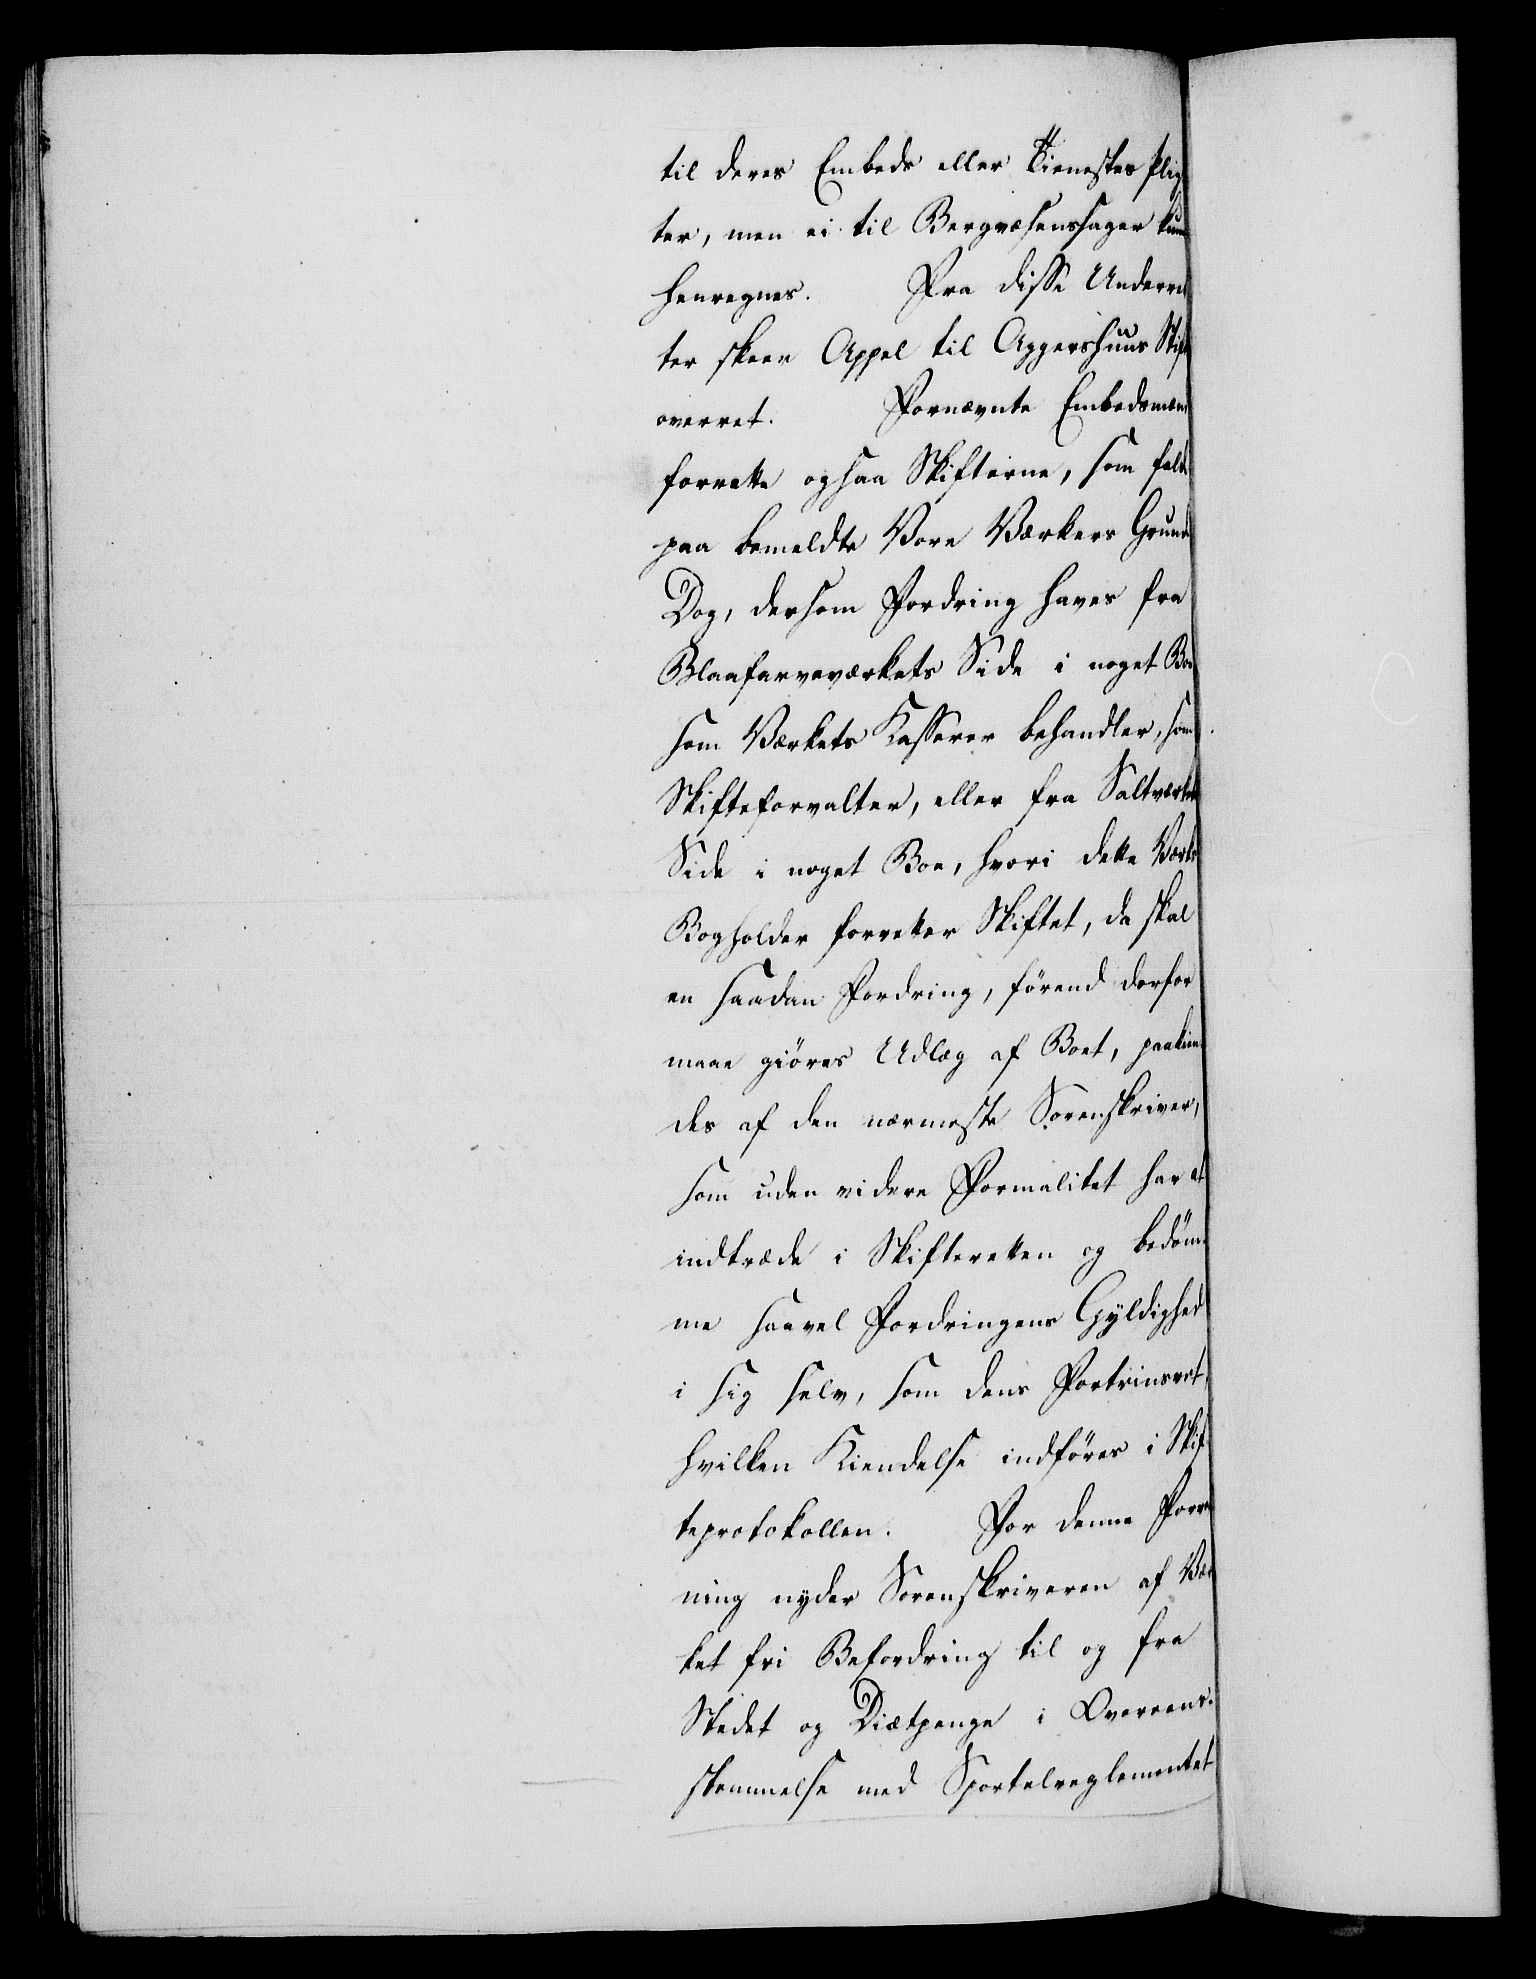 til deres Embeds eller Tienestes Plig
ter, men ei til Bergvæsenssager kun
henregnes. Fra disse Underret
ter skeer Appel til Aggershuus Stift
overret. Fornævnte Embedsmæn
forrette ogsaa Skifterne, som falde
paa bemeldte Vore Værkers Grund
Dog, dersom Fordring haves fra
Blaafarveværkets Side i noget Boe
som Værkets Kasserer behandler, som
Skifteforvalter, eller fra Saltværkets
Side i noget Boe, hvori dette Værks
Bogholder forretter Skiftet, da skal
en saadan Fordring, förend derfor
maae giöres Udlæg af Boet, paakien
des af den nærmeste Sorenskriver,
som uden videre Formalitet har at
indtræde i Skifteretten og bedöm
me saavel Fordringens Gyldighed
i sig selv, som dens Fortrinsret,
hvilken Kiendelse indföres i Skif
teprotokollen. For denne Forret
ning nyder Sorenskriveren af Vær
ket fri Befordring til og fra
Stedet og Diætpenge i Overeens-
stemmelse med Sportelreglementet